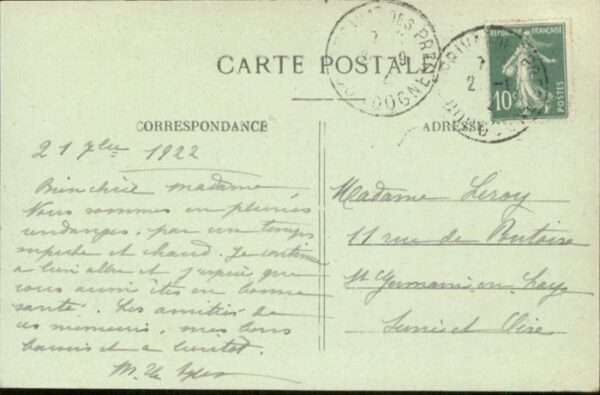 CARTE POSTALE
RÉPUBLIQUE FRANÇAISE
10c
POSTES
CORRESPONDANCE
ADRESSE
21 7bre 1922
Bien chère madame,
Nous sommes en pleines
vendanges, par un temps
superbe et chaud. Je continue
a bien aller et j'espère que
vous aussi êtes en bonne
santé. Les amitiés de
ces messieurs, mes bons
baisers et a bientôt.
Madame Leroy
11 rue de Pontoise
St Germain en Laye
Seine et Oise